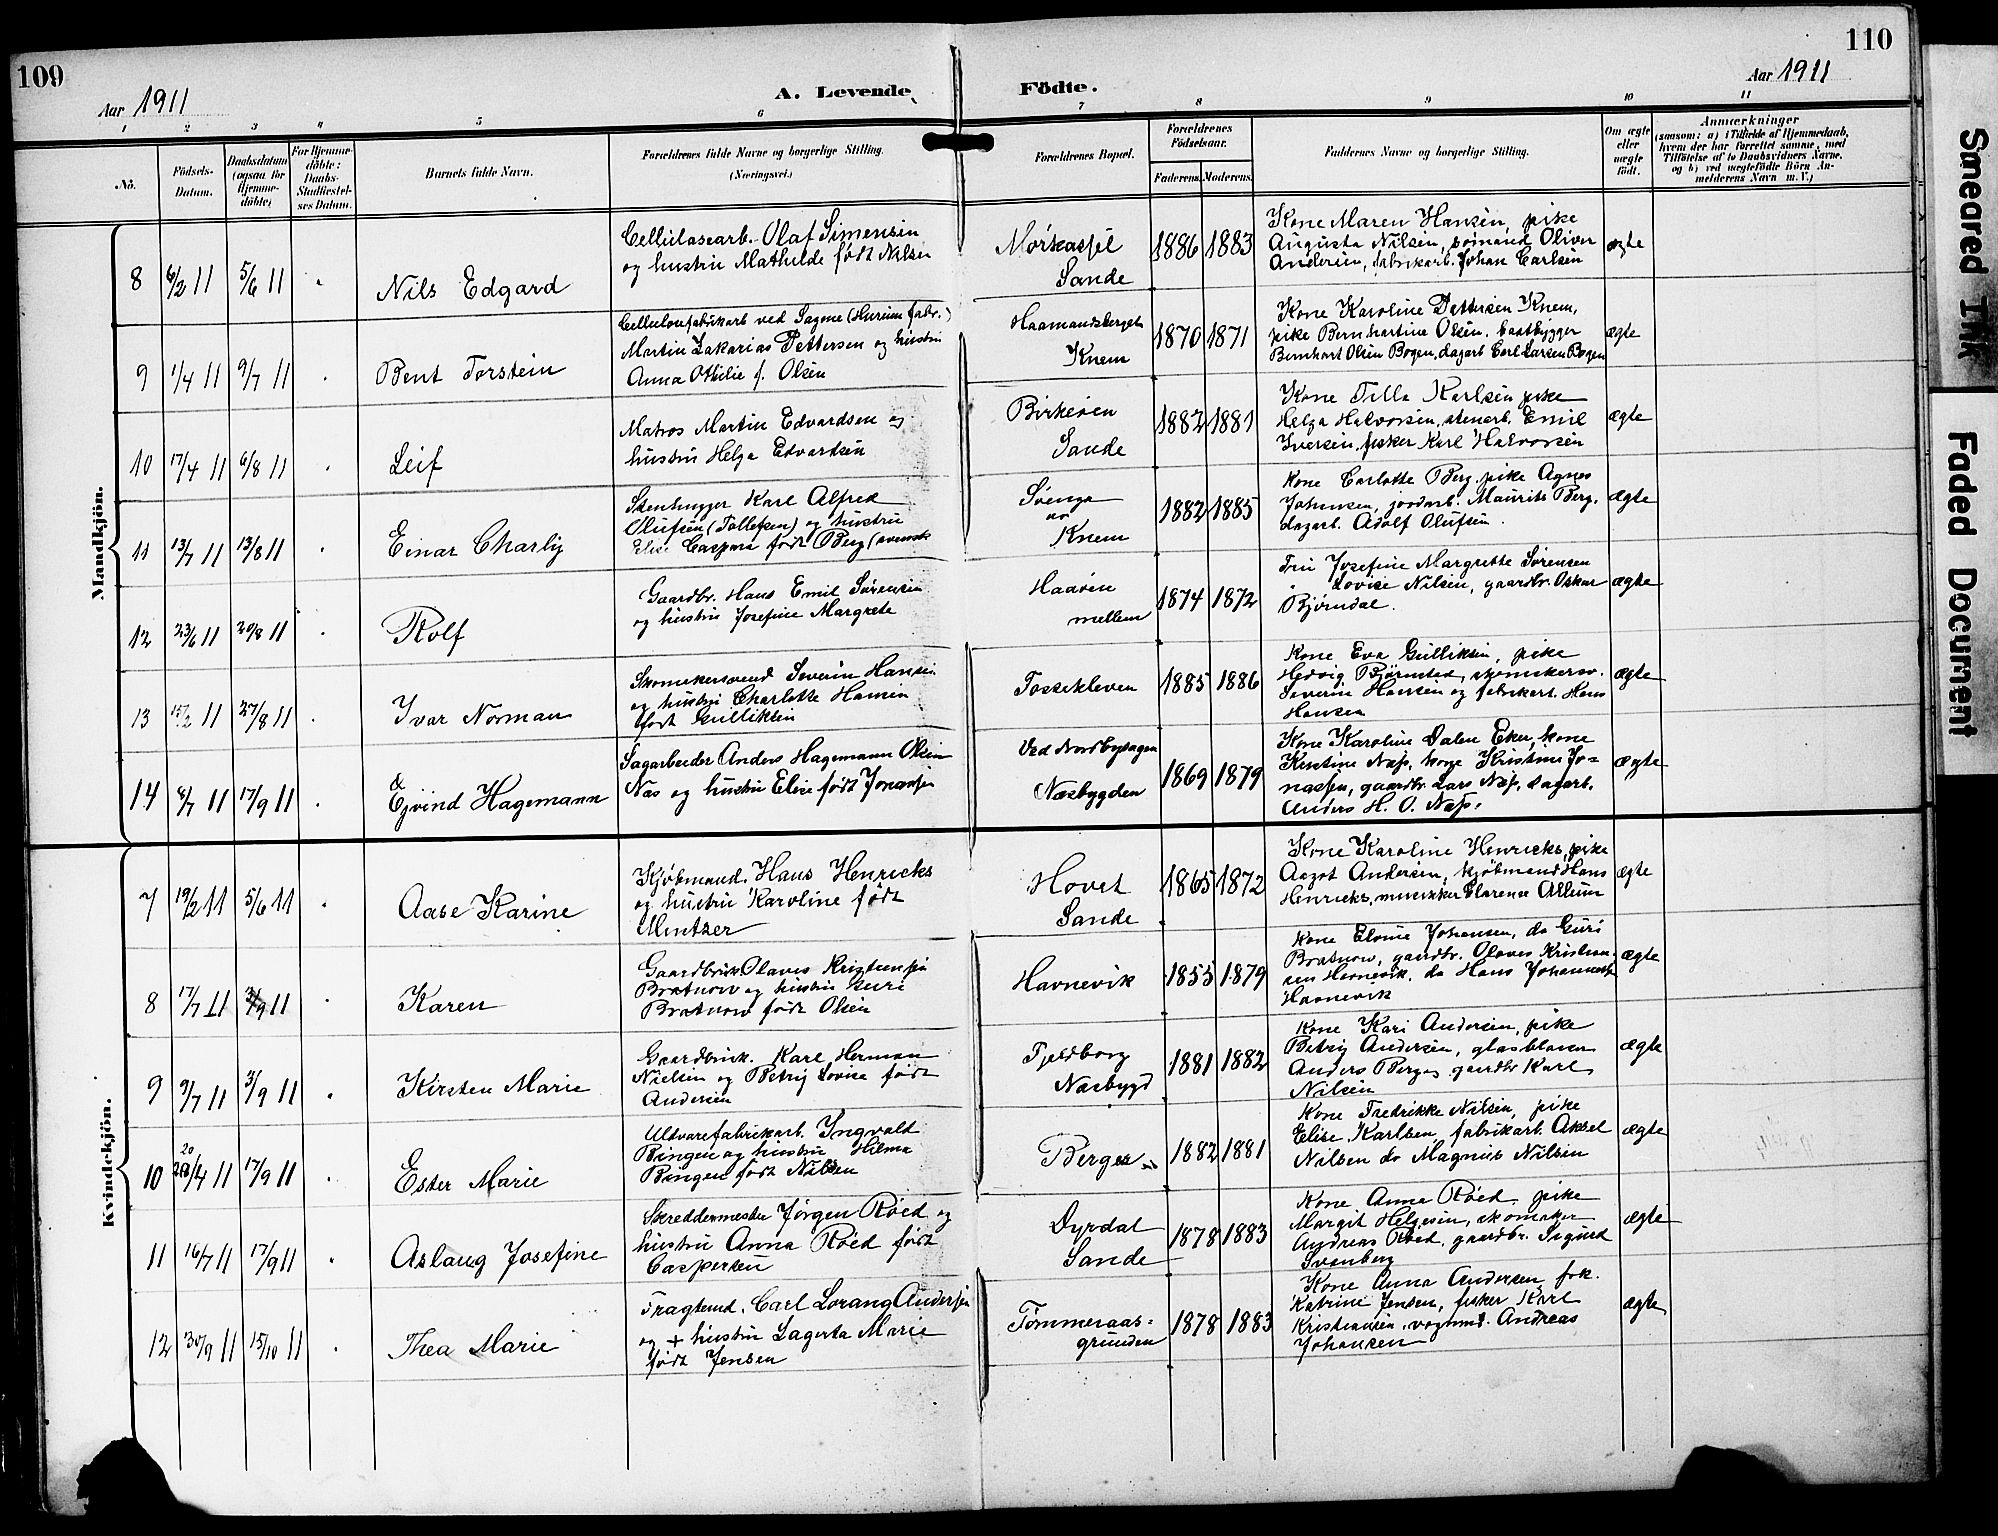 109
110
Aar 1911
A. Levende Födte.
Aar 1911
1 2 3 4 5 6 7 8 9 10 11
No.
Födsels-
Datum.
Daabsdatum
(ogsaa for
Hjemme-
döbte)
For Hjemme-
döbte:
Daabs-
Stadfæstel-
ses Datum.
Barnets fulde Navn.
Forældrenes fulde Navne og borgerlige Stilling.
(Næringsvei.)
Forældrenes Bopæl.
Forældrenes
Födselsaar.
Faderens. Moderens.
Faddernes Navne og borgerlige Stilling.
Om ægte
eller
uægte
födt.
Anmærkninger
(saasom: a) i Tilfælde af Hjemmedaab,
hvem der har forrettet samme, med
Tilföielse af to Daabsvidners Navne,
og b) ved uægtefödte Börn An-
melderens Navn m. V.)
Mandkjön.
8 6/2 11 5/6 11 Nils Edgard
Cellulosearb. Olaf Simensen
og hustru Mathilde født Nilsen
Sande
1886 1883
Kone Maren Hansen, pike
Augusta Nilsen, sømand Oliver
Andersen, fabrikarb. Johan Carlsen
ægte
9 1/4 11 9/7 11 Bent Torstein
Cellulosefabrikarb ved Sagene (Hurum fabr.)
Martin Zakarias Pettersen og hustru
Anna Othilie f. Olsen
Knem
1870 1871
Kone Karoline Pettersen Knem,
pike Bernhartine Olsen, baatbygger
Bernhart Olsen Bogen, dagarb Carl Larsen Bogen
ægte
10 17/4 11 6/8 11 Leif
Matros Martin Edvardsen og
hustru Helga Edvardsen
Birkeøen
Sande
1882 1881
Kone Tilla Karlsen pike
Helga Halvorsen, stenarb. Emil
Iversen, fisker Karl Halvorsen
ægte
11 13/7 11 13/8 11 Einar Charly
Stenhugger Karl Alfred
Olufsen (Tollefsen) og hustru
Elise Caspara født Berg (svensk
Svenga
Knem
1882 1885
Kone Carlotte Berg, pike Agnes
Johansen, jordarb. Maurits Berg,
dagarb. Adolf Olufsen.
ægte
12 23/6 11 20/8 11 Rolf
Gaardbr. Hans Emil Sørensen
og hustru Josefine Margrete
Haaøen
mellem
1874 1872
Fru Josefine Margrethe Sørensen
Lovise Nilsen, gaardbr. Oskar
Bjørndal.
ægte
13 15/2 11 27/8 11 Ivar Norman
Skomakersvend Severin Hansen
og hustru Charlotte Hansen
født Gulliksen
Fossekleven
1885 1886
Kone Eva Gulliksen, pike
Hedvig Bjørnstad, skomakersv.
Severin Hansen og fabrikarb. Hans
Hansen
ægte
14 8/7 11 17/9 11 Ejvind Hagemann
Sagarbeider Anders Hagemann Olsen
Næs og hustru Elise født Jonassen
Ved Nordbysagen
Næsbygden
1869 1879
Kone Karoline Dalen Eker, kone
Kirstine Næss, kone Kristine Jo-
nassen, gaardbr. Lars Næss, dagarb.
Anders H. O. Næss.
ægte
Kvindekjön.
7 19/2 11 5/6 11 Aase Karine
Kjøbmand. Hans Henricks
og hustru Karoline født
Mentzer
Hovet
Sande
1865 1872
Kone Karoline Henricks, pike
Aagot Andersen, kjøbmand Hans
Henricks, musikker Clarence Allum
ægte
8 17/7 11 3/9 11 Karen
Gaardbruk. Olaves Kristensen
Bratnow og hustru Guri
Bratnow født Olsen
Havnevik
1855 1879
Kone Elonie Johansen, do Guri
Bratnow, gaardbr. Olaves Kristen-
sen Havnevik. do Hans Johannes
Havnevik
ægte
9 9/7 11 3/9 11 Kirsten Marie
Gaardbruk. Karl Herman
Nielsen og Petrig Lovise født
Andersen
Fjeldborg
Næsbygd
1881 1882
Kone Kari Andersen, pike
Petrig Andersen, glasblaser
Anders Berge, gaardbr Karl
Nilsen
ægte
10 20/4 11 17/9 11 Ester Marie
Uldvarefabrikarb. Ingvald
Bingen og hustru Hilma
Bingen født Nilsen
1882 1881
Kone Fredrikke Nilsen, pike
Elise Karlsen, fabrikarb. Aksel
Nilsen do Magnus Nilsen
ægte
11 16/7 11 17/9 11 Aslaug Josefine
Skreddermester Jørgen Røed og
hustru Anna Røed født
Caspersen
Dyrdal
Sande
1878 1883
Kone Anna Røed, pike
Margit Helgesen, skomaker
Andreas Røed, gaardbr. Sigurd
Svenberg
ægte
12 30/9 11 15/10 11 Thea Marie
Fragtemd. Carl Lorang Andersen
og + hustru Lagerta Marie
født Jensen
Tømmeraas-
grunden
1878 1883
Kone Anna Andersen, frk.
Katrine Jensen, fisker Karl
Kristiansen, vognmd. Andreas
Johansen
ægte
Smeared Ink
Faded Document